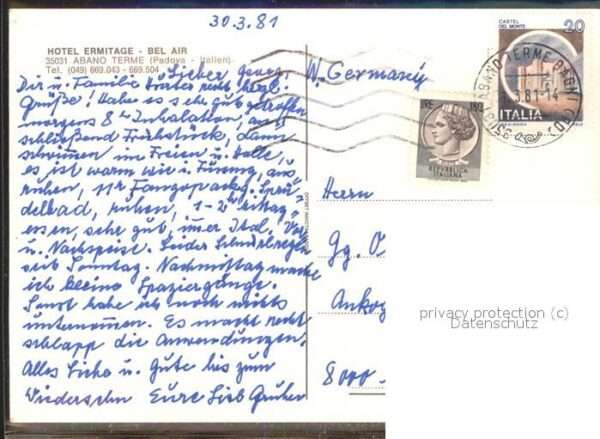 30.3.81
HOTEL ERMITAGE - BEL AIR
35031 ABANO TERME (Padova - Italien)
Tel. (049) 669.043 - 669.504
Lieber Georg,
Dir u. Familie
Grüße! Habe es sehr gut getroffen
morgens 8 Uhr Inhalation, an-
schließend Frühstück, dann
schwimmen im Freien u. Halle,
es ist warm wie i. Füssing, aus-
ruhen, 11 Fangopackg. Spru-
delbad, ruhen, 1-2
essen, sehr gut, immer Ital. Vor
u. Nachspeise. Leider
seit Sonntag. Nachmittag mache
ich kleine Spaziergänge.
Sonst habe ich noch nichts
unternommen. Es macht recht
schlapp die Anwendungen.
Alles Liebe u. Gute bis zum
Wiedersehn Eure
W. Germany
Herrn
Gg. O
Ankog
8000
CASTEL DEL MONTE
20
ITALIA
ABANO TERME
REPUBBLICA
ITALIANA
privacy protection (c)
Datenschutz